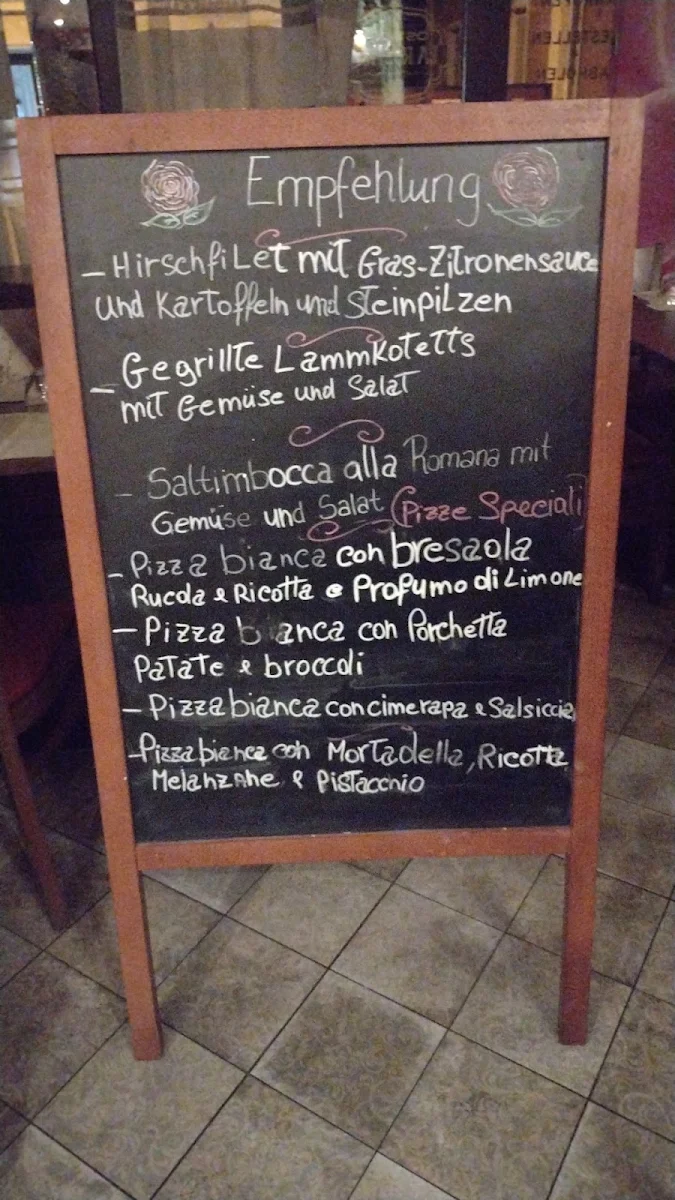 ESTELLEN
ABHOLEN
Empfehlung
- Hirschfilet mit Gras-Zitronensauce
und Kartoffeln und Steinpilzen
- Gegrillte Lammkotetts
mit Gemüse und Salat
- Saltimbocca alla Romana mit
Gemüse und Salat (Pizze Speciali)
- Pizza bianca con bresaola
Rucola e Ricotta e Profumo di Limone
- Pizza bianca con Porchetta
Patate e broccoli
- Pizza bianca con cimerapa e Salsiccia
- Pizza bianca con Mortadella, Ricotta
Melanzane e Pistacchio